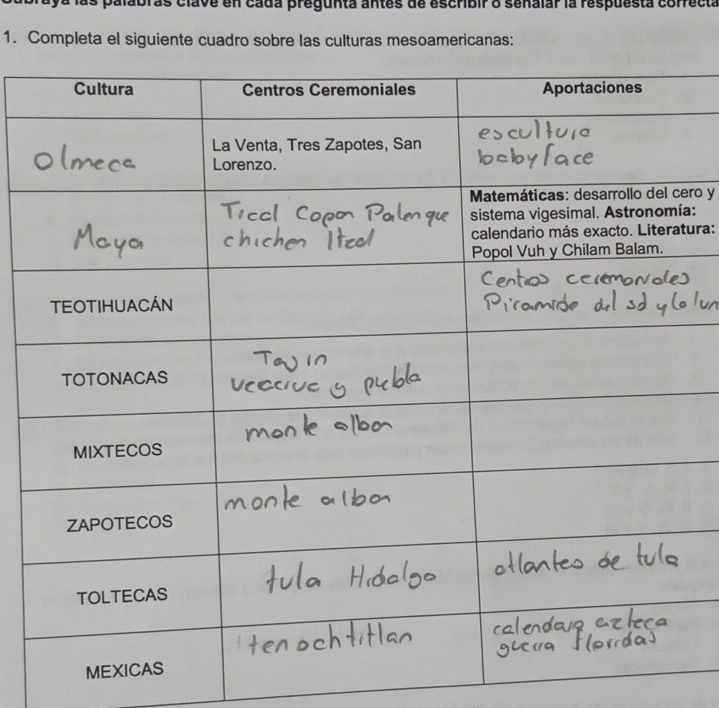 Subraya las palabras clave en cada pregunta antes de escribir o señalar la respuesta correcta
1. Completa el siguiente cuadro sobre las culturas mesoamericanas:
Cultura Centros Ceremoniales Aportaciones
Olmeca
La Venta, Tres Zapotes, San
Lorenzo.
escultura
babyface
Maya
Tical Copan Palenque
chichen Itzal
Matemáticas: desarrollo del cero y
sistema vigesimal. Astronomía:
calendario más exacto. Literatura:
Popol Vuh y Chilam Balam.
TEOTIHUACÁN
Centros ceremoniales
Piramide del sol y la lun
TOTONACAS
Tajin
veracruz y puebla
MIXTECOS
monte alban
ZAPOTECOS
monte alban
TOLTECAS
tula Hidalgo
atlantes de tula
MEXICAS
tenochtitlan
calendario azteca
guerra floridas